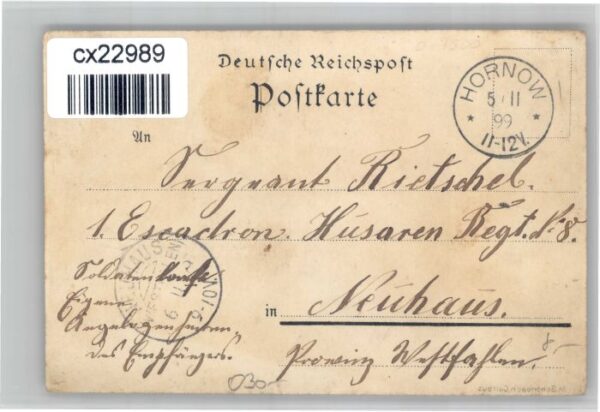 cx22989
Deutsche Reichspost
Postkarte
HORNOW
5/11
99
11-12V.
An
Sergeant Rietschel.
1. Escadron. Husaren Regt. No 8.
Soldatenkarte
Eigene
Angelegenheiten
des Empfängers.
in Neuhaus.
Provinz Westfahlen.